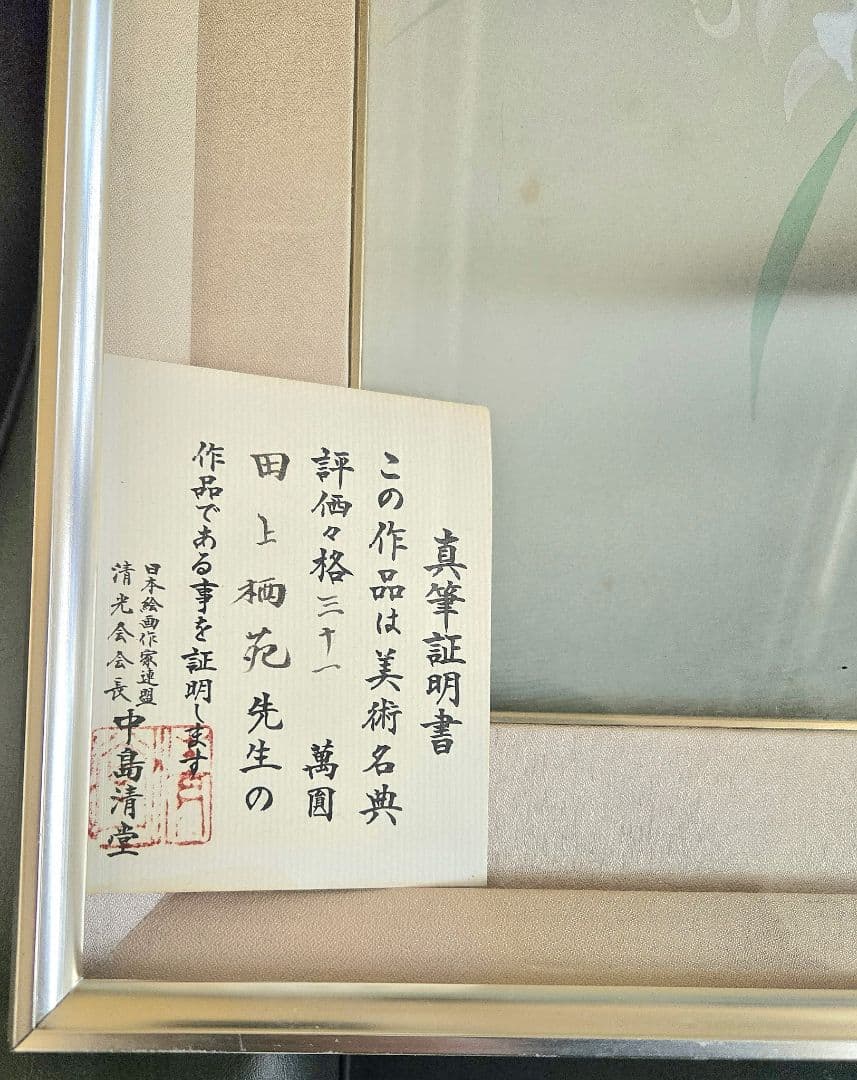 真筆証明書
この作品は美術名典
評価々格三十一 萬圓
田上栖苑先生の
作品である事を証明します
日本絵画作家連盟
清光会会長 中島清堂